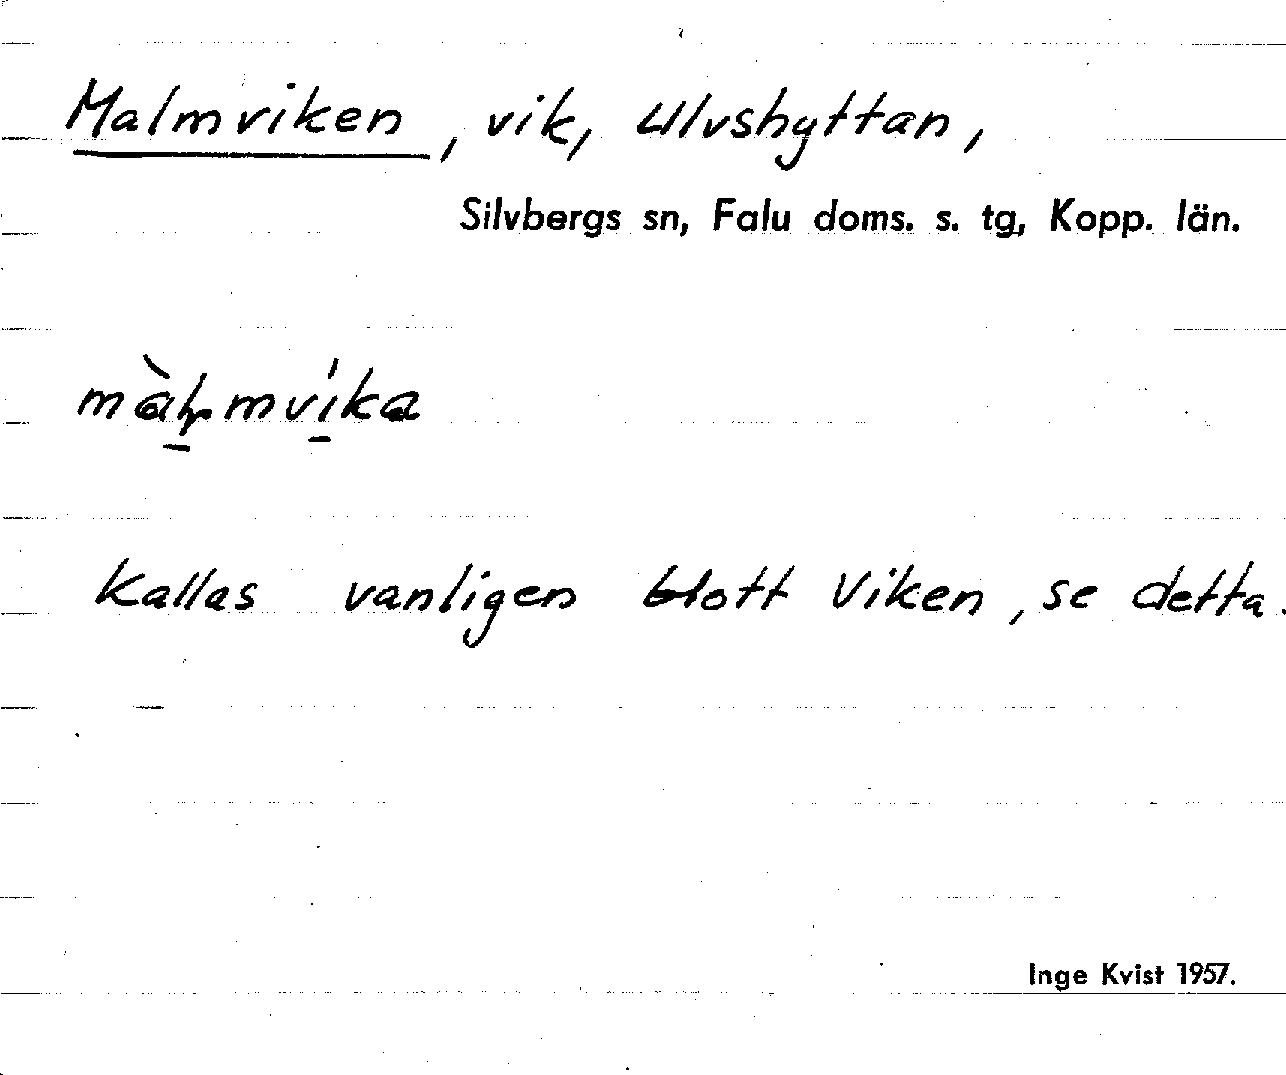 Malmviken, vik, Ulvshyttan,
Silvbergs sn, Falu doms. s. tg, Kopp. län.
kallas vanligen blott Viken, se detta.
Inge Kvist 1957.